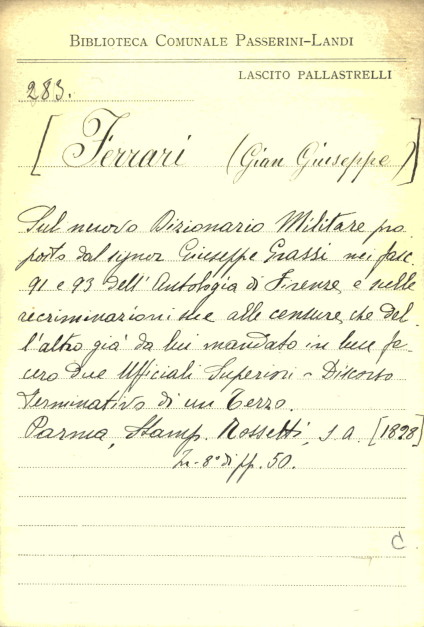 BIBLIOTECA COMUNALE PASSERINI-LANDI
LASCITO PALLASTRELLI
283.
[Ferrari (Gian Giuseppe)]
Sul nuovo Dizionario Militare pro
posto dal signor Giuseppe Grassi nei fasc.
91 e 93 dell'Antologia di Firenze e nelle
recriminazioni sue alle censure, che del-
l'altro già da lui mandato in luce fe-
cero due Ufficiali Superiori - Discorso
Terminativo di un Terzo.
Parma, Stamp. Rossetti, s a. [1828]
In-8° di pp. 50.
C